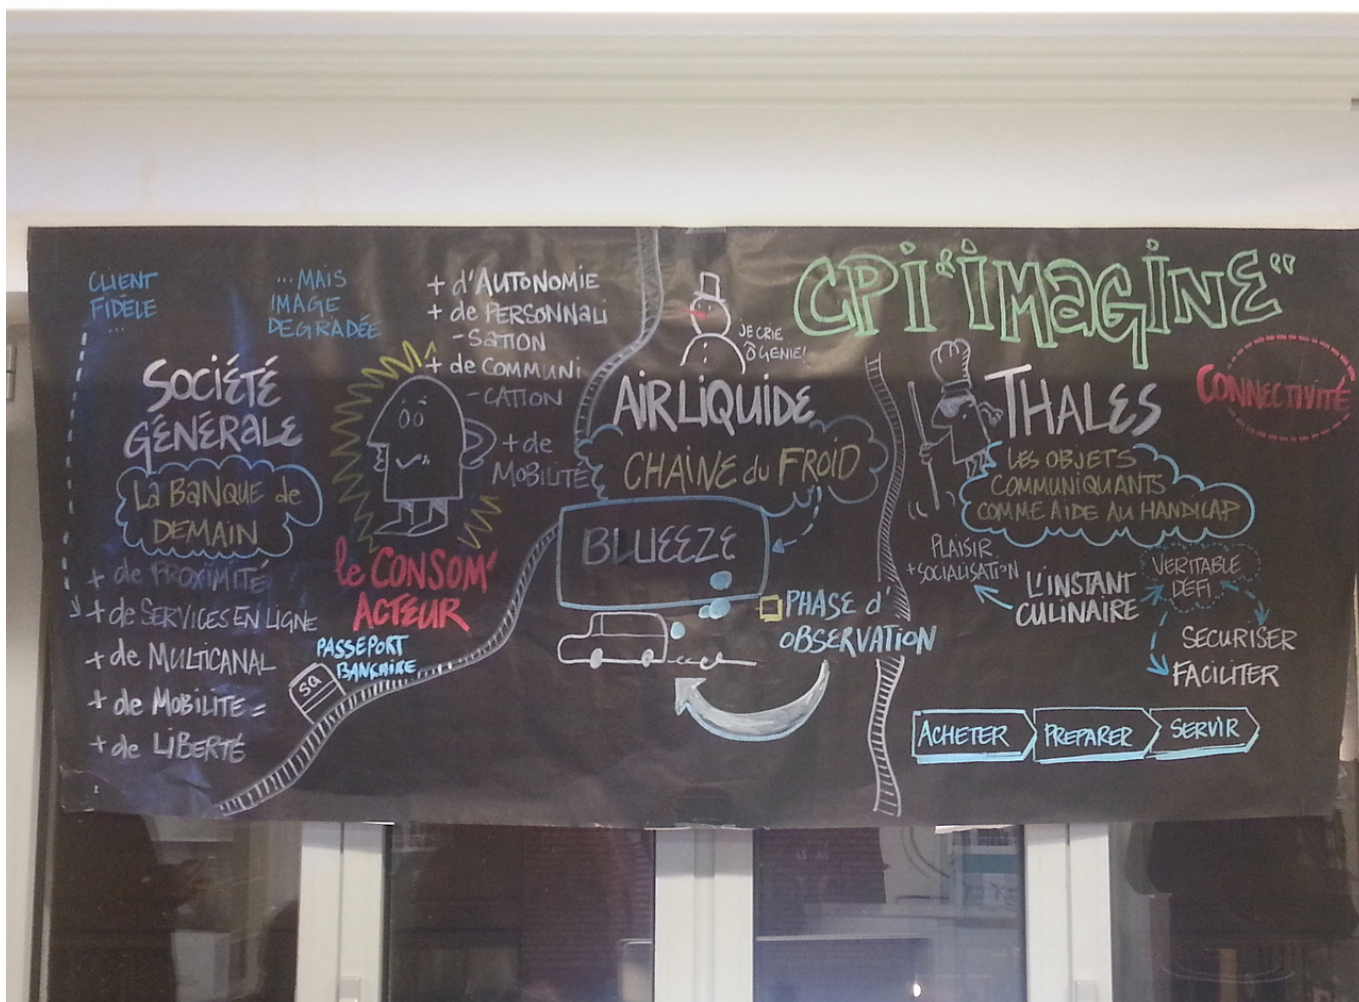 CPI "IMAGINE"
CLIENT
FIDÈLE
...
...MAIS
IMAGE
DEGRADÉE
+ d'AUTONOMIE
+ de PERSONNALI
-SATION
+ de COMMUNI
-CATION
+ de
MOBILITÉ
SOCIÉTÉ
GÉNÉRALE
LA BANQUE de
DEMAIN
+ de PROXIMITÉ
+ de SERVICES EN LIGNE
+ de MULTICANAL
+ de MOBILITE =
+ de LIBERTÉ
le CONSOM'
ACTEUR
PASSEPORT
BANCAIRE
SG
JE CRIE
Ô GENIE!
AIR LIQUIDE
CHAINE du FROID
BLUEEZE
PHASE d'
OBSERVATION
THALES
CONNECTIVITÉ
LES OBJETS
COMMUNIQUANTS
COMME AIDE AU HANDICAP
PLAISIR
+ SOCIALISATION
L'INSTANT
CULINAIRE
VERITABLE
DÉFI
SECURISER
FACILITER
ACHETER
PREPARER
SERVIR